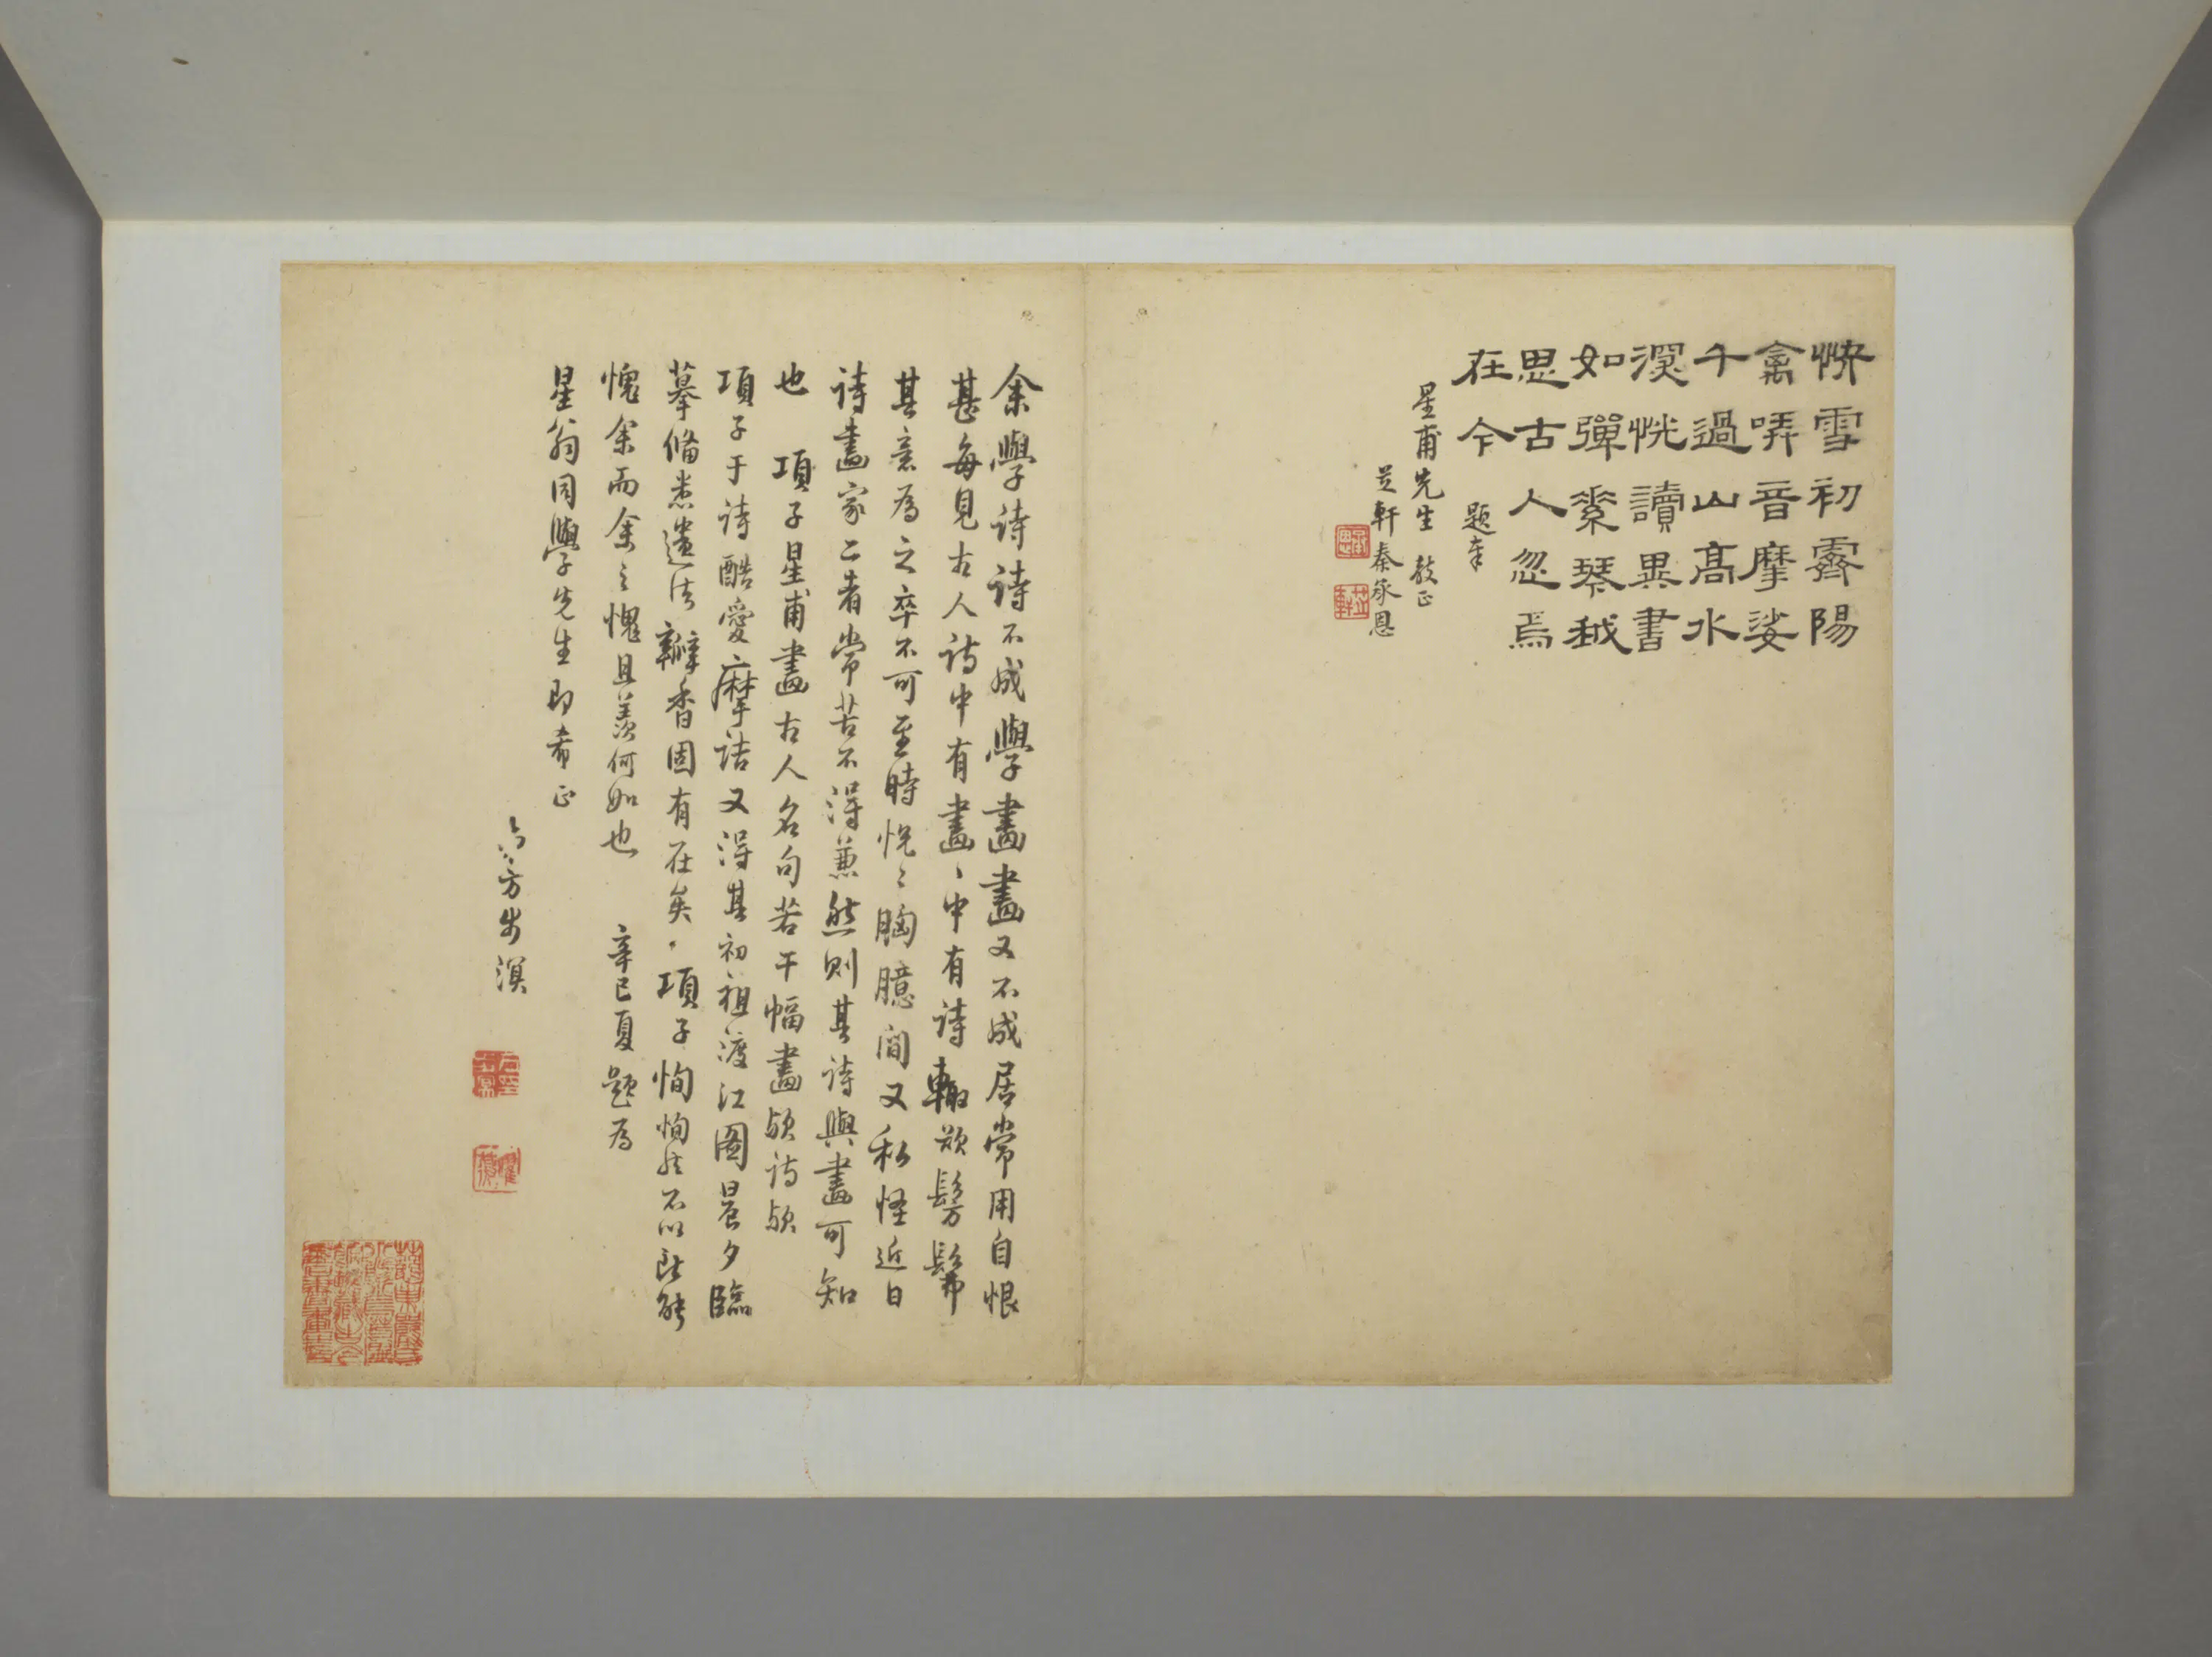 快雪初霽陽
禽哢音摩娑
千過山高水
深恍讀異書
如彈素琴越
思古人忽焉
在今 題奉
星甫先生 教正
芝軒秦承恩
余學詩詩不成學畫畫又不成居常用自恨
甚每見古人詩中有畫、中有詩輒欲髣髴
其意為之卒不可至時恍〻胸臆間又私怪近日
詩畫家二者常苦不得兼然則其詩與畫可知
也 項子星甫畫古人名句若干幅畫歟詩歟
項子于詩酷愛摩詰又得其初祖渡江圖晨夕臨
摹俻悉遺法瓣香固有在矣項子恂恂然不以所能
愧余而余之愧且羨何如也 辛巳夏題為
星翁同學先生即希正
方步瀛